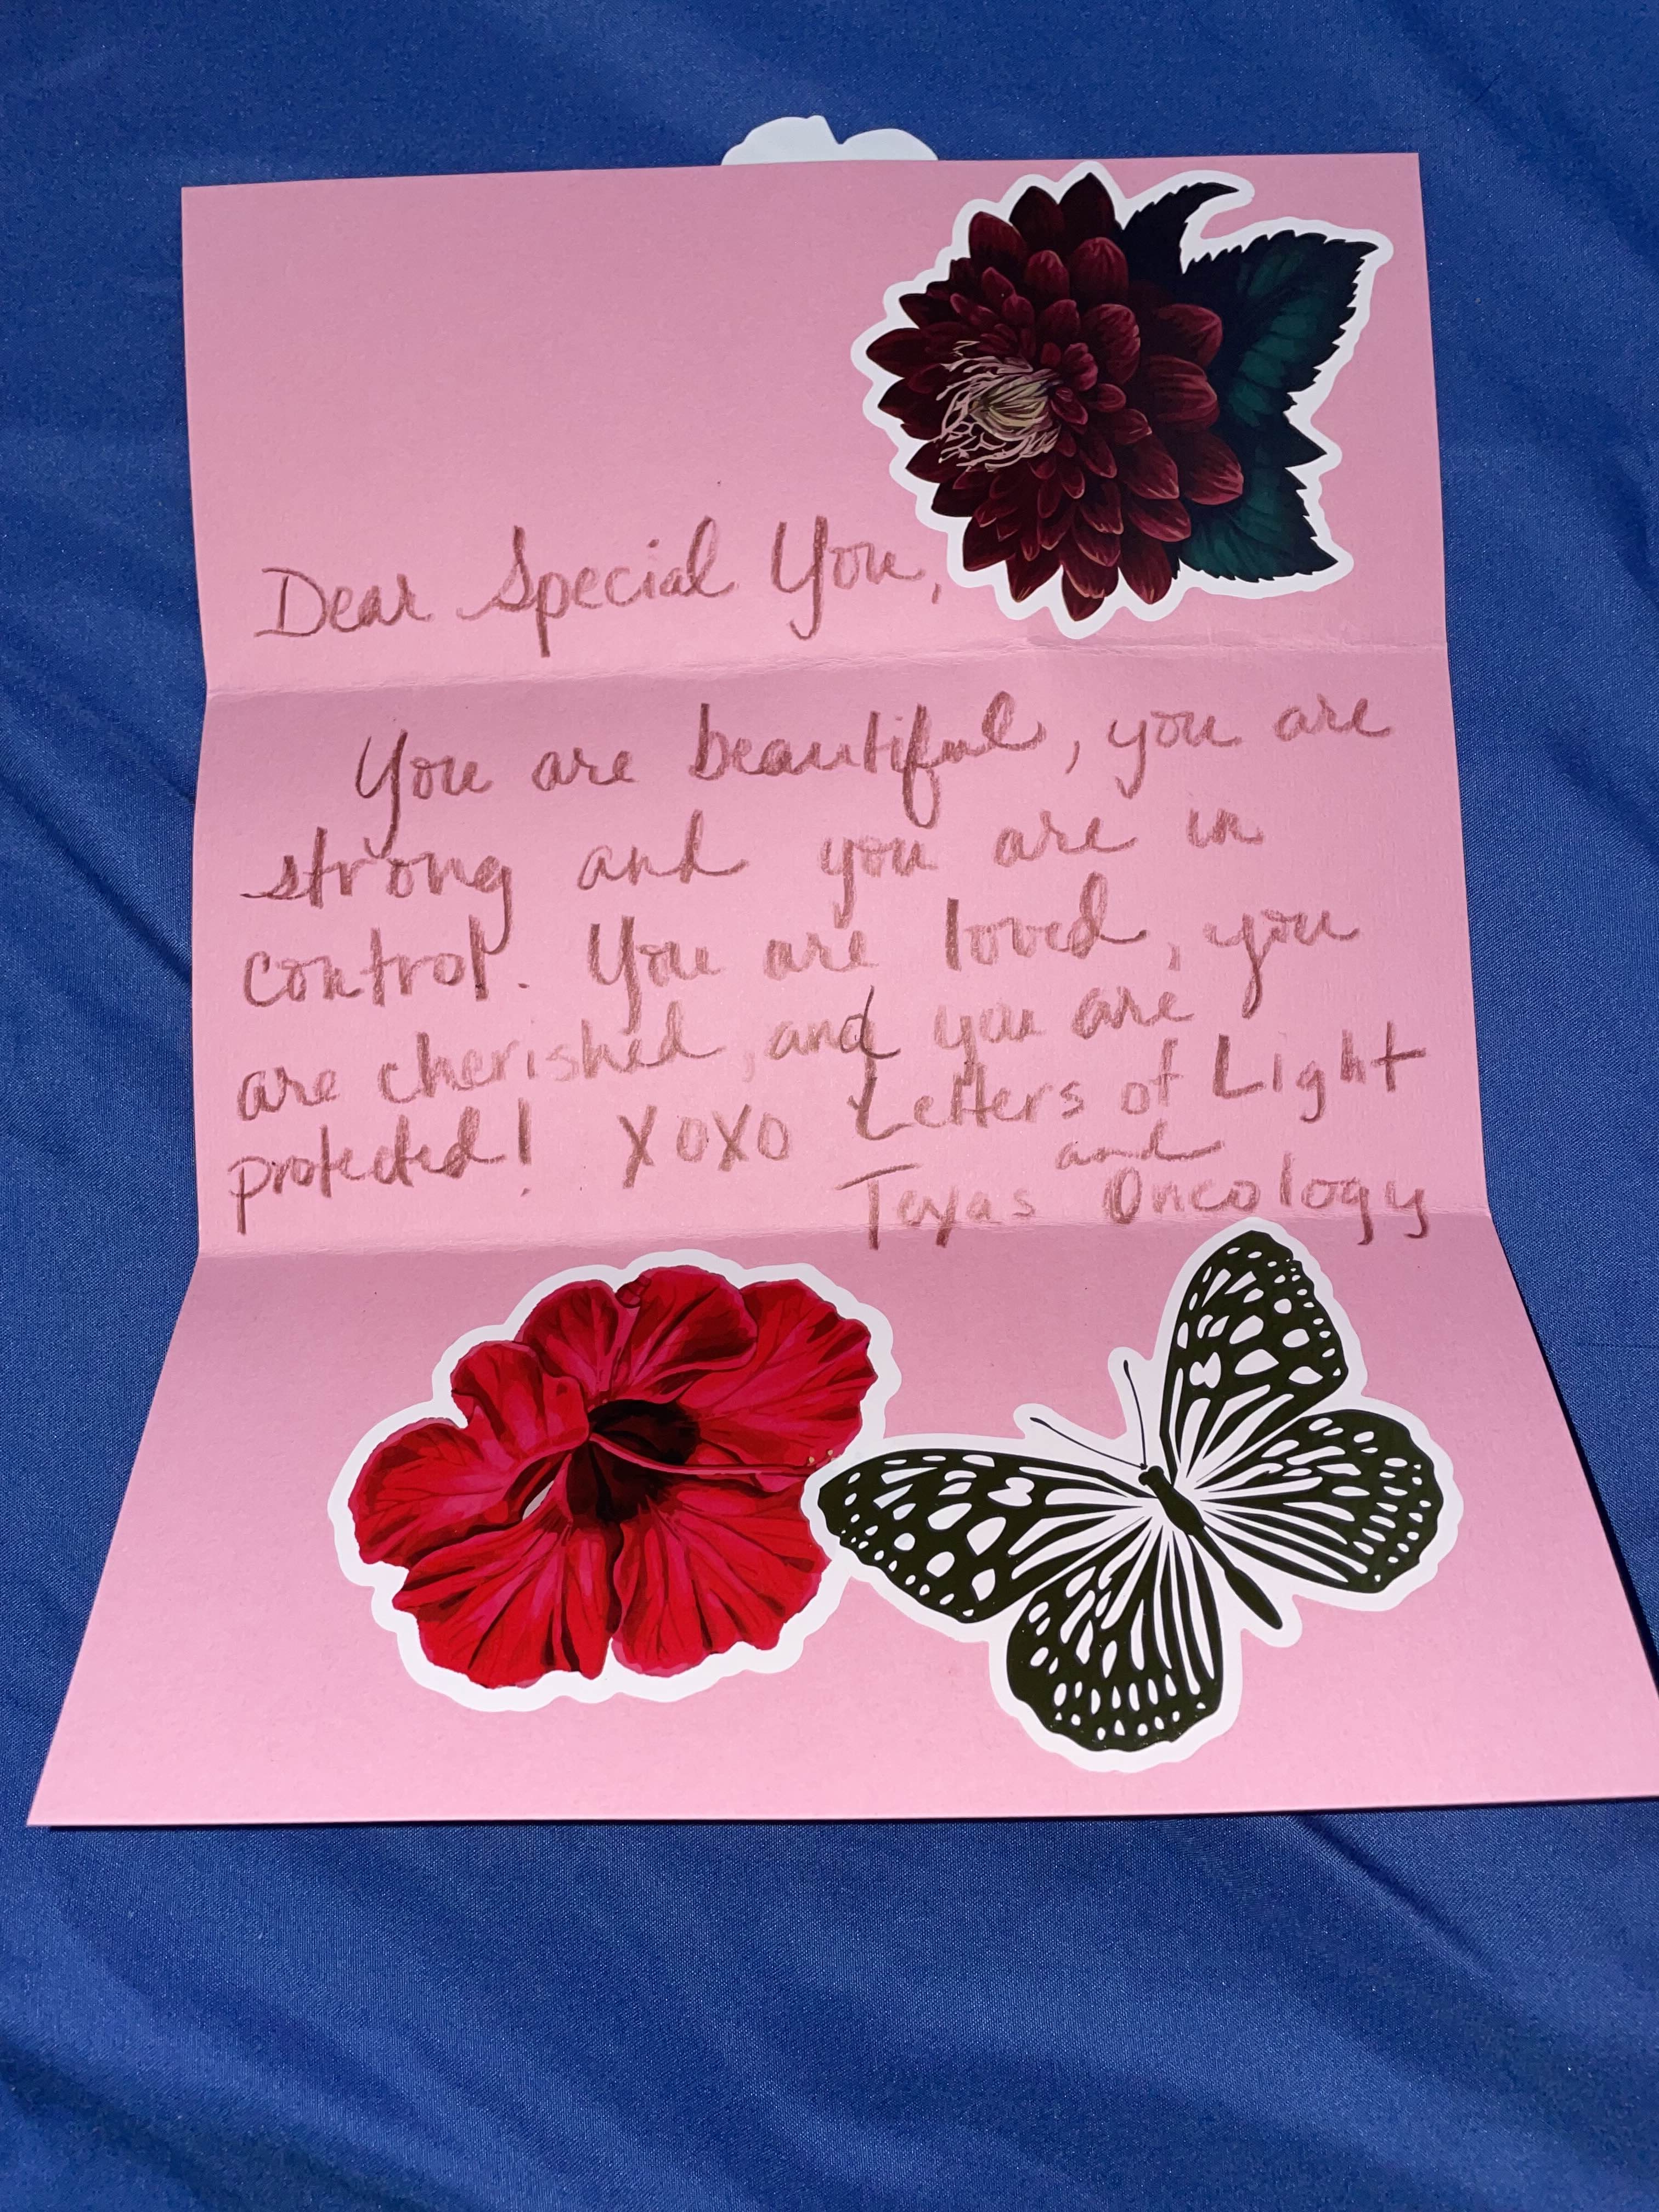 Dear Special You,
You are beautiful, you are
strong and you are in
control. You are loved, you
are cherished, and you are
protected! XOXO Letters of Light
and
Texas Oncology